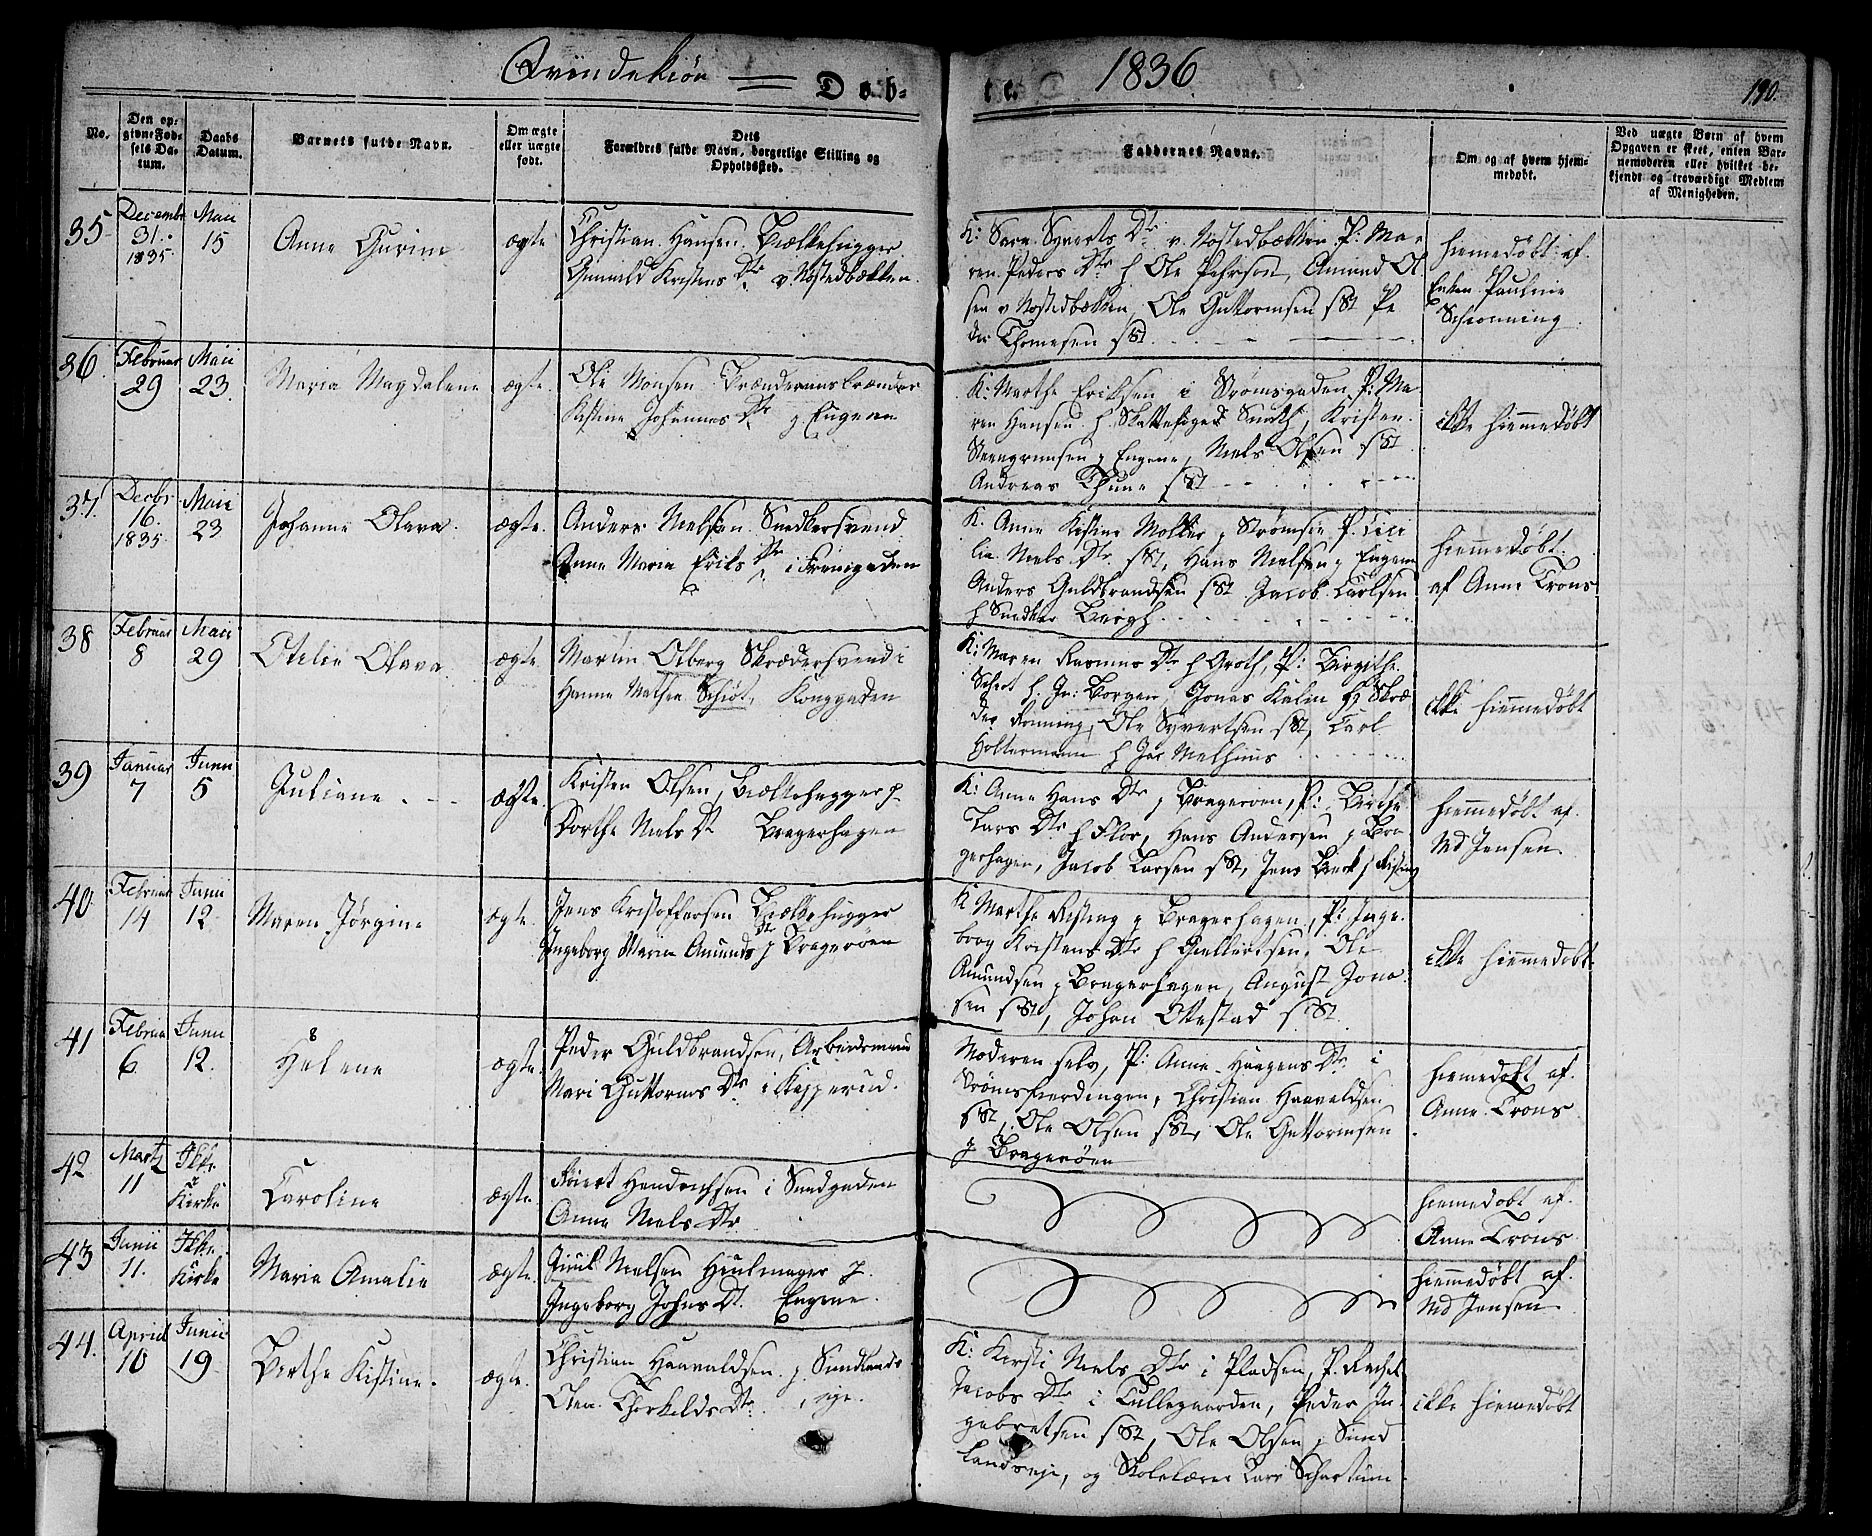 Qvindekiøn = Døb-
te. 1836 190.
No.
Den op-
givne Fød-
sels Da-
tum.
Daabs
Datum.
Barnets fulde Navn.
Om ægte
eller uægte
født.
Dets
Forældres fulde Navn, borgerlige Stilling og
Opholdssted.
Faddernes Navne.
Om og af hvem hjem-
medøbt.
Ved uægte Børn af hvem
Opgaven er skeet, enten Bar-
nemoderen eller hvilket be-
kjendt og troværdigt Medlem
af Menigheden.
35 Decembr 31. 1835. Maii 15 Anne Gurine ægte
Christian Hansen, Bielkehugger
Gunnild Kristens Dtr v. Nøstedbækken
K: Sara Syverts Dtr v. Nøstedbækken P: Ma-
ren Peders Dtr h Ole Pehrson, Amund Ol
sen v Nøstedbækken, Ole Guttormsen sSt Pe
der Thomesen sSt.
hiemedøbt af.
Enken Pauline
Schionning
36. Februar 29 Maii 23. Maria Magdalene ægte.
Ole Monsen Brændeviinsbrænder
Kistine Johannes Dtr p Engene
K: Marthe Eriksen i Strømsgaden, P: Ma-
ren Hansen h. Skattefoged Smith, Kristen
Steengrimsen p Engene, Niels Olsen sSt
Andreas Thune sSt
ikke hiemmedøbt
37. Decbr 16. 1835. Maii 23 Johanne Olava. ægte.
Anders Nielsen Snedkersvend
Anne Maria Eriks Dtr i
K. Anne Kistine Møller p Strømsøe P. Ceci
lia Niels Dtr sSt, Hans Nielsen p Engene
Anders Guldbrandsen sSt Jacob Carlsen
h Snedker Bergh.
hiemmedøbt.
af Anne Trons
38 Februar 8 Maii 29 Otelie Olava. ægte.
Martin Olberg Skrædersvend i
Hanna Mathea Schiøt, Konggaden
K: Maren Rasmus Dtr h Groth, P: Birgithe
Schiøt h. Jr: Borgen, Jonas Kalin hg Skræ
der Rønning, Ole Syvertsen sSt, Carl
Holtermann h Jac Melhuus
ikke hiemmedøbt
39 Januar 7 Junii 5 Juliane. ægte.
Kristen Olsen, Bielkehugger p
Dorthe Niels Dtr Bragerhagen
K: Anne Hans Dtr p Bragerøen, P: Birthe
Lars Dtr h Flor, Hans Andersen p Bra
gerhagen, Jacob Larsen sSt, Jens Berk p Risting
hiemmedøbt af.
Md Jensen.
40 Februar 14 Junii 12. Maren Jørgine ægte.
Jens Kristoffersen Bielkehugger
Ingeborg Maria Amunds Dtr p Bragerøen
K Marthe Risting p Bragerhagen, P: Inge-
borg Kristens Dtr h Giellertsen, Ole
Amundsen p Bragerhagen, August Jona
sen sSt, Johan Ottestad sSt.
ikke hiemmedøbt.
41 Februar 6 Junii 12. Helene ægte.
Peder Guldbrandsen, Arbeidsmand
Mari Guttorms Dtr i Kopperud.
Moderen selv, P: Anne Haagens Dtr i
Strømsfierdingen, Christian Haavaldsen
sSt, Ole Olsen sSt, Ole Guttormsen
p Bragerøen
hiemedøbt af.
Anne Trons
42 Martz 11 Ikke i Kirke Caroline ægte.
Hendrichsen i Sundgaden
Anna Niels Dtr
hiemedøbt af.
Anne Trons
43 Junii 11. Ikke i Kirke Maria Amalie ægte.
Juul Nielsen Hiulmager p.
Ingeborg Johns Dt. Engene.
hiemmedøbt af.
Md Jensen
44. April 10 Junii 19. Birthe Kistine. ægte.
Christian Haavaldsen p Sundlands
Olea Thorkelds Dtr eje.
K: Kirsti Niels Dtr i Pladsen, P. Rachel
Jacobs Dtr i Tullegaarden, Peder In
gebretsen sSt, Ole Olsen p Sund
landseje, og Skolelærer Lars Schartum
ikke hiemedøbt